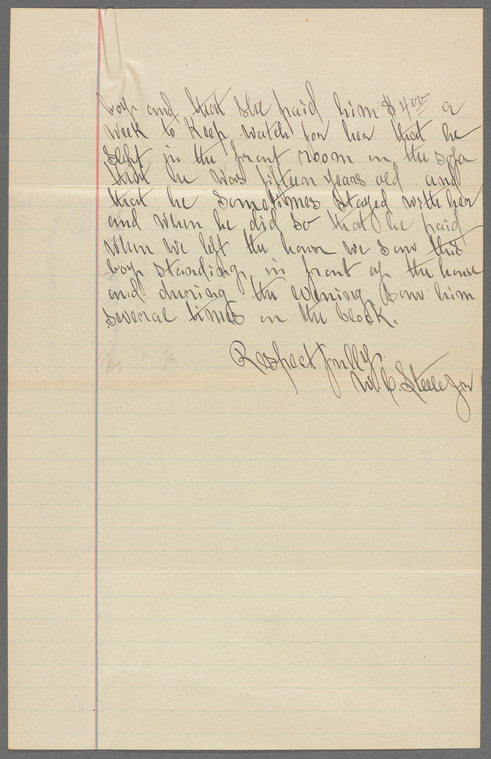 boy and that she paid him $4.00 a
week to keep watch for her that he
slept in the front room on the sofa
that he was fifteen years old and
that he sometimes stayed with her
and when he did so that he paid
When we left the house we saw this
boy standing in front of the house
and during the evening saw him
several times on the block.
Respectfully
W. C. Steele Jr